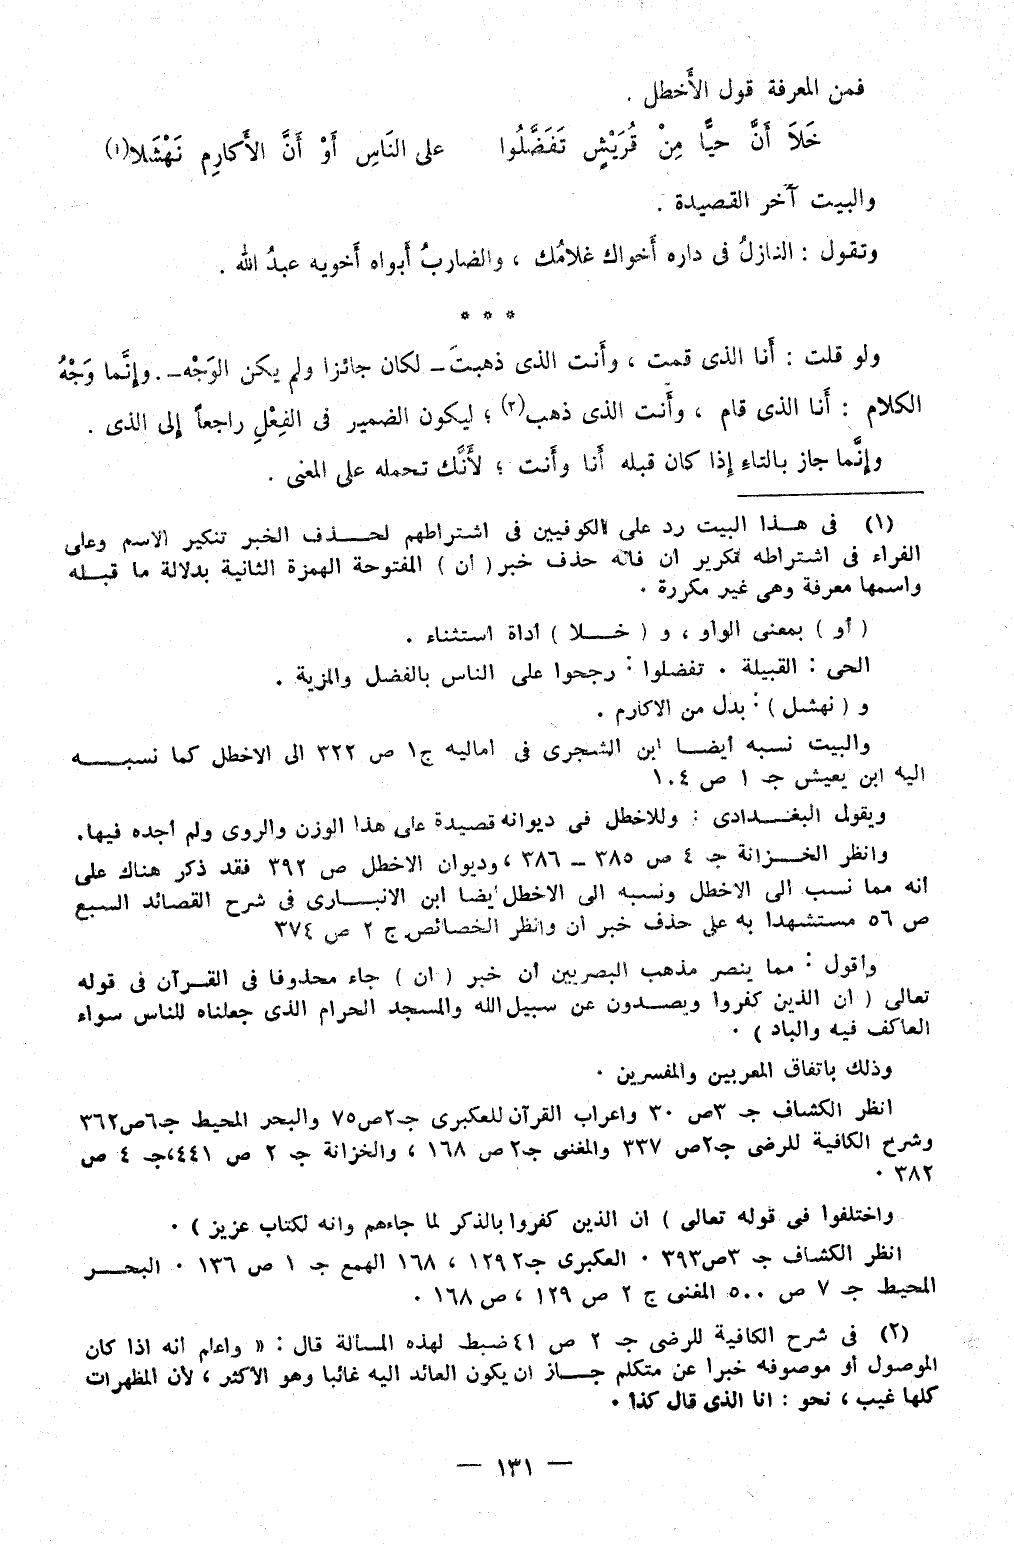 فمن المعرفة قول الأَخطل .
خَلَا أَنَّ حيًّا مِنْ قُرَيْشٍ تَفَضَّلُوا على النَاسِ أَوْ أَنَّ الأَكارِم نَهْشَلا(١)
والبيت آخر القصيدة .
وتقول : النازلُ فى داره أَخواك غلامُك ، والضاربُ أَبواه أَخويه عبدُ الله .
* * *
ولو قلت : أَنا الذى قمت ، وأَنت الذى ذهبتَ – لكان جائزا ولم يكن الوَجْه – . وإنَّما وَجْهُ
الكلام : أَنا الذى قام ، وأَنت الذى ذهب(٢) ؛ ليكون الضمير فى الفِعْلِ راجعاً إلى الذى .
وإنَّما جاز بالتاءِ إذا كان قبله أَنا وأَنت ؛ لأَنَّك تحمله على المعنى .
(١) فى هـذا البيت رد على الكوفيين فى اشتراطهم لحـذف الخبر تنكير الاسم وعلى
الفراء فى اشتراطه تكرير ان فانه حذف خبر ( ان ) المفتوحة الهمزة الثانية بدلالة ما قبـله
واسمها معرفة وهى غير مكررة .
( أو ) بمعنى الواو ، و ( خـلا ) أداة استثناء .
الحى : القبيلة . تفضلوا : رجحوا على الناس بالفضل والمزية .
و ( نهشل ) : بدل من الاكارم .
والبيت نسبه أيضـا ابن الشجرى فى اماليه ج١ ص ٣٢٢ الى الاخطل كما نسبـه
اليه ابن يعيش جـ ١ ص ١٠٤
ويقول البغـدادى : وللاخطل فى ديوانه قصيدة على هذا الوزن والروى ولم أجده فيها.
وانظر الخـزانة جـ ٤ ص ٣٨٥ – ٣٨٦ ، وديوان الاخطل ص ٣٩٢ فقد ذكر هناك على
أنه مما نسب الى الاخطل ونسبه الى الاخطل أيضا ابن الانبـارى فى شرح القصائد السبع
ص ٥٦ مستشهدا به على حذف خبر ان وانظر الخصائص ج ٢ ص ٣٧٤
وأقول : مما ينصر مذهب البصريين أن خبر ( ان ) جاء محذوفا فى القـرآن فى قوله
تعالى ( ان الذين كفروا ويصـدون عن سبيل الله والمسجد الحرام الذى جعلناه للناس سواء
العاكف فيه والباد ) .
وذلك باتفاق المعربين والمفسرين .
انظر الكشاف جـ ٣ص ٣٠ واعراب القرآن للعكبرى جـ٢ص٧٥ والبحر المحيط جـ٦ص٣٦٢
وشرح الكافية للرضى جـ٢ص ٣٣٧ والمغنى جـ٢ص ١٦٨ ، والخزانة جـ ٢ ص ٤٤١،جـ ٤ ص
٣٨٢ .
واختلفوا فى قوله تعالى ) ان الذين كفروا بالذكر لما جاءهم وانه لكتاب عزيز ) .
انظر الكشاف جـ ٣ص٣٩٣ . العكبرى جـ٢ ١٢٩ ، ١٦٨ الهمع جـ ١ ص ١٣٦ . البحـر
المحيط جـ ٧ ص ٥٠٠ المغنى ج ٢ ص ١٢٩ ، ص ١٦٨ .
(٢) فى شرح الكافية للرضى جـ ٢ ص ٤١ ضبط لهذه المسألة قال : « واعلم أنه اذا كان
الموصول أو موصوفه خبرا عن متكلم جـاز ان يكون العائد اليه غائبا وهو الأكثر ، لأن المظهرات
كلها غيب ، نحو : انا الذى قال كذا .
— ١٣١ —